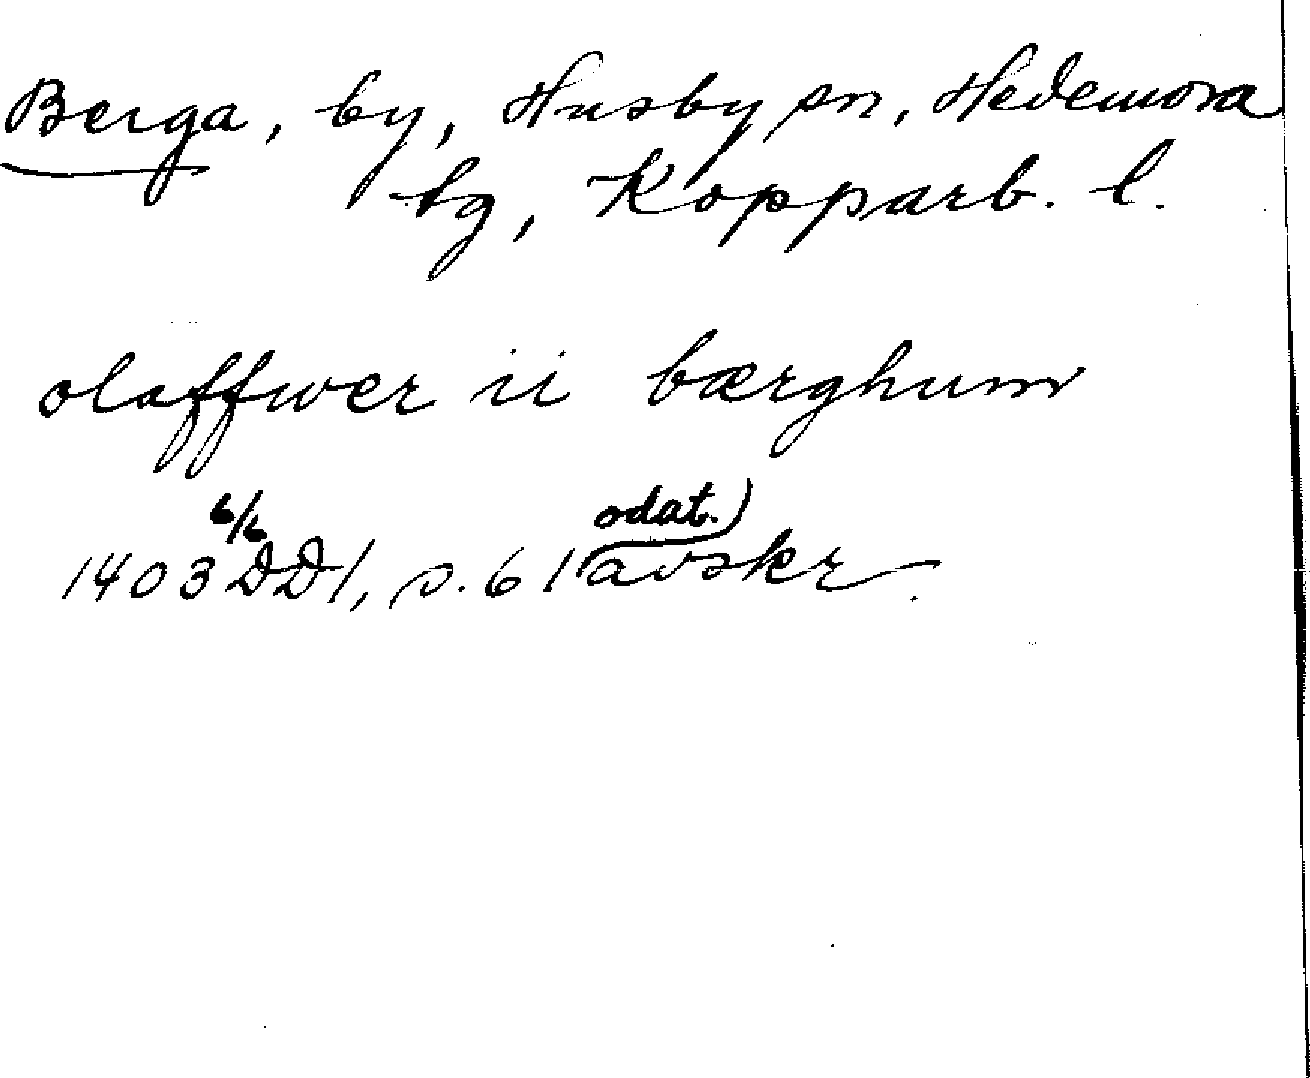 Berga, by, Husby sn, Hedemora
tg, Kopparb. l.
olaffwer ii bærghum
6/6 odat.)
1403 DD1, s. 61 avskr.